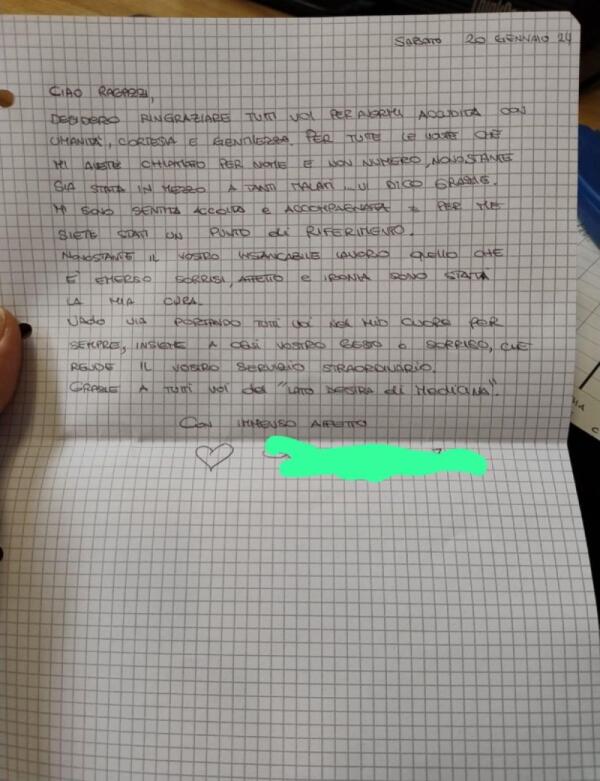 SABATO 20 GENNAIO 24
CIAO RAGAZZI,
DESIDERO RINGRAZIARE TUTTI VOI PER AVERMI ACCUDITA CON
UMANITÀ, CORTESIA E GENTILEZZA. PER TUTTE LE VOLTE CHE
MI AVETE CHIAMATO PER NOME E NON NUMERO, NONOSTANTE
SIA STATA IN MEZZO A TANTI MALATI... VI DICO GRAZIE.
MI SONO SENTITA ACCOLTA E ACCOMPAGNATA E PER ME
SIETE STATI UN PUNTO di RIFERIMENTO.
NONOSTANTE IL VOSTRO INSANCABILE LAVORO QUELLO CHE
È EMERSO SORRISI, AFFETTO E IRONIA SONO STATA
LA MIA CURA.
VADO VIA PORTANDO TUTTI VOI NEL MIO CUORE PER
SEMPRE, INSIEME A OGNI VOSTRO GESTO O SORRISO, CHE
RENDE IL VOSTRO SERVIZIO STRAORDINARIO.
GRAZIE A TUTTI VOI del "LATO DESTRA di MEDICINA".
CON IMMENSO AFFETTO